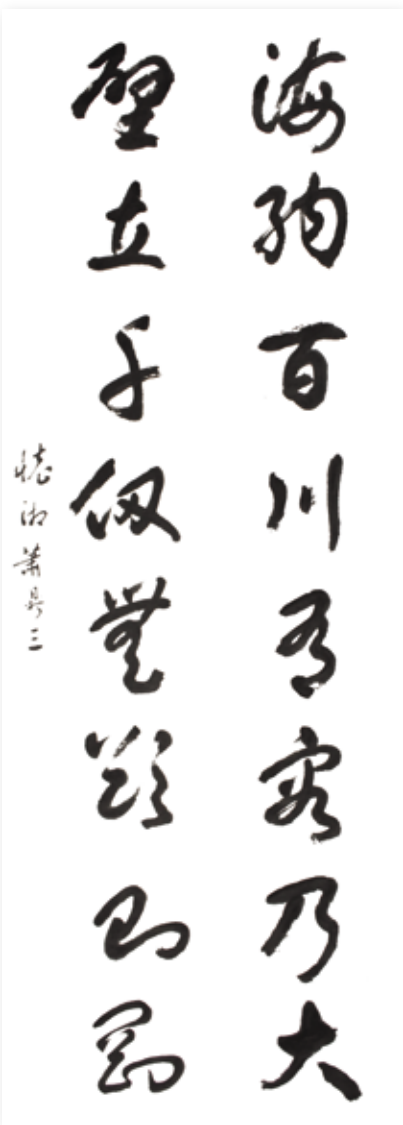 海納百川有容乃大
壁立千仞無欲則剛
湘蕭三